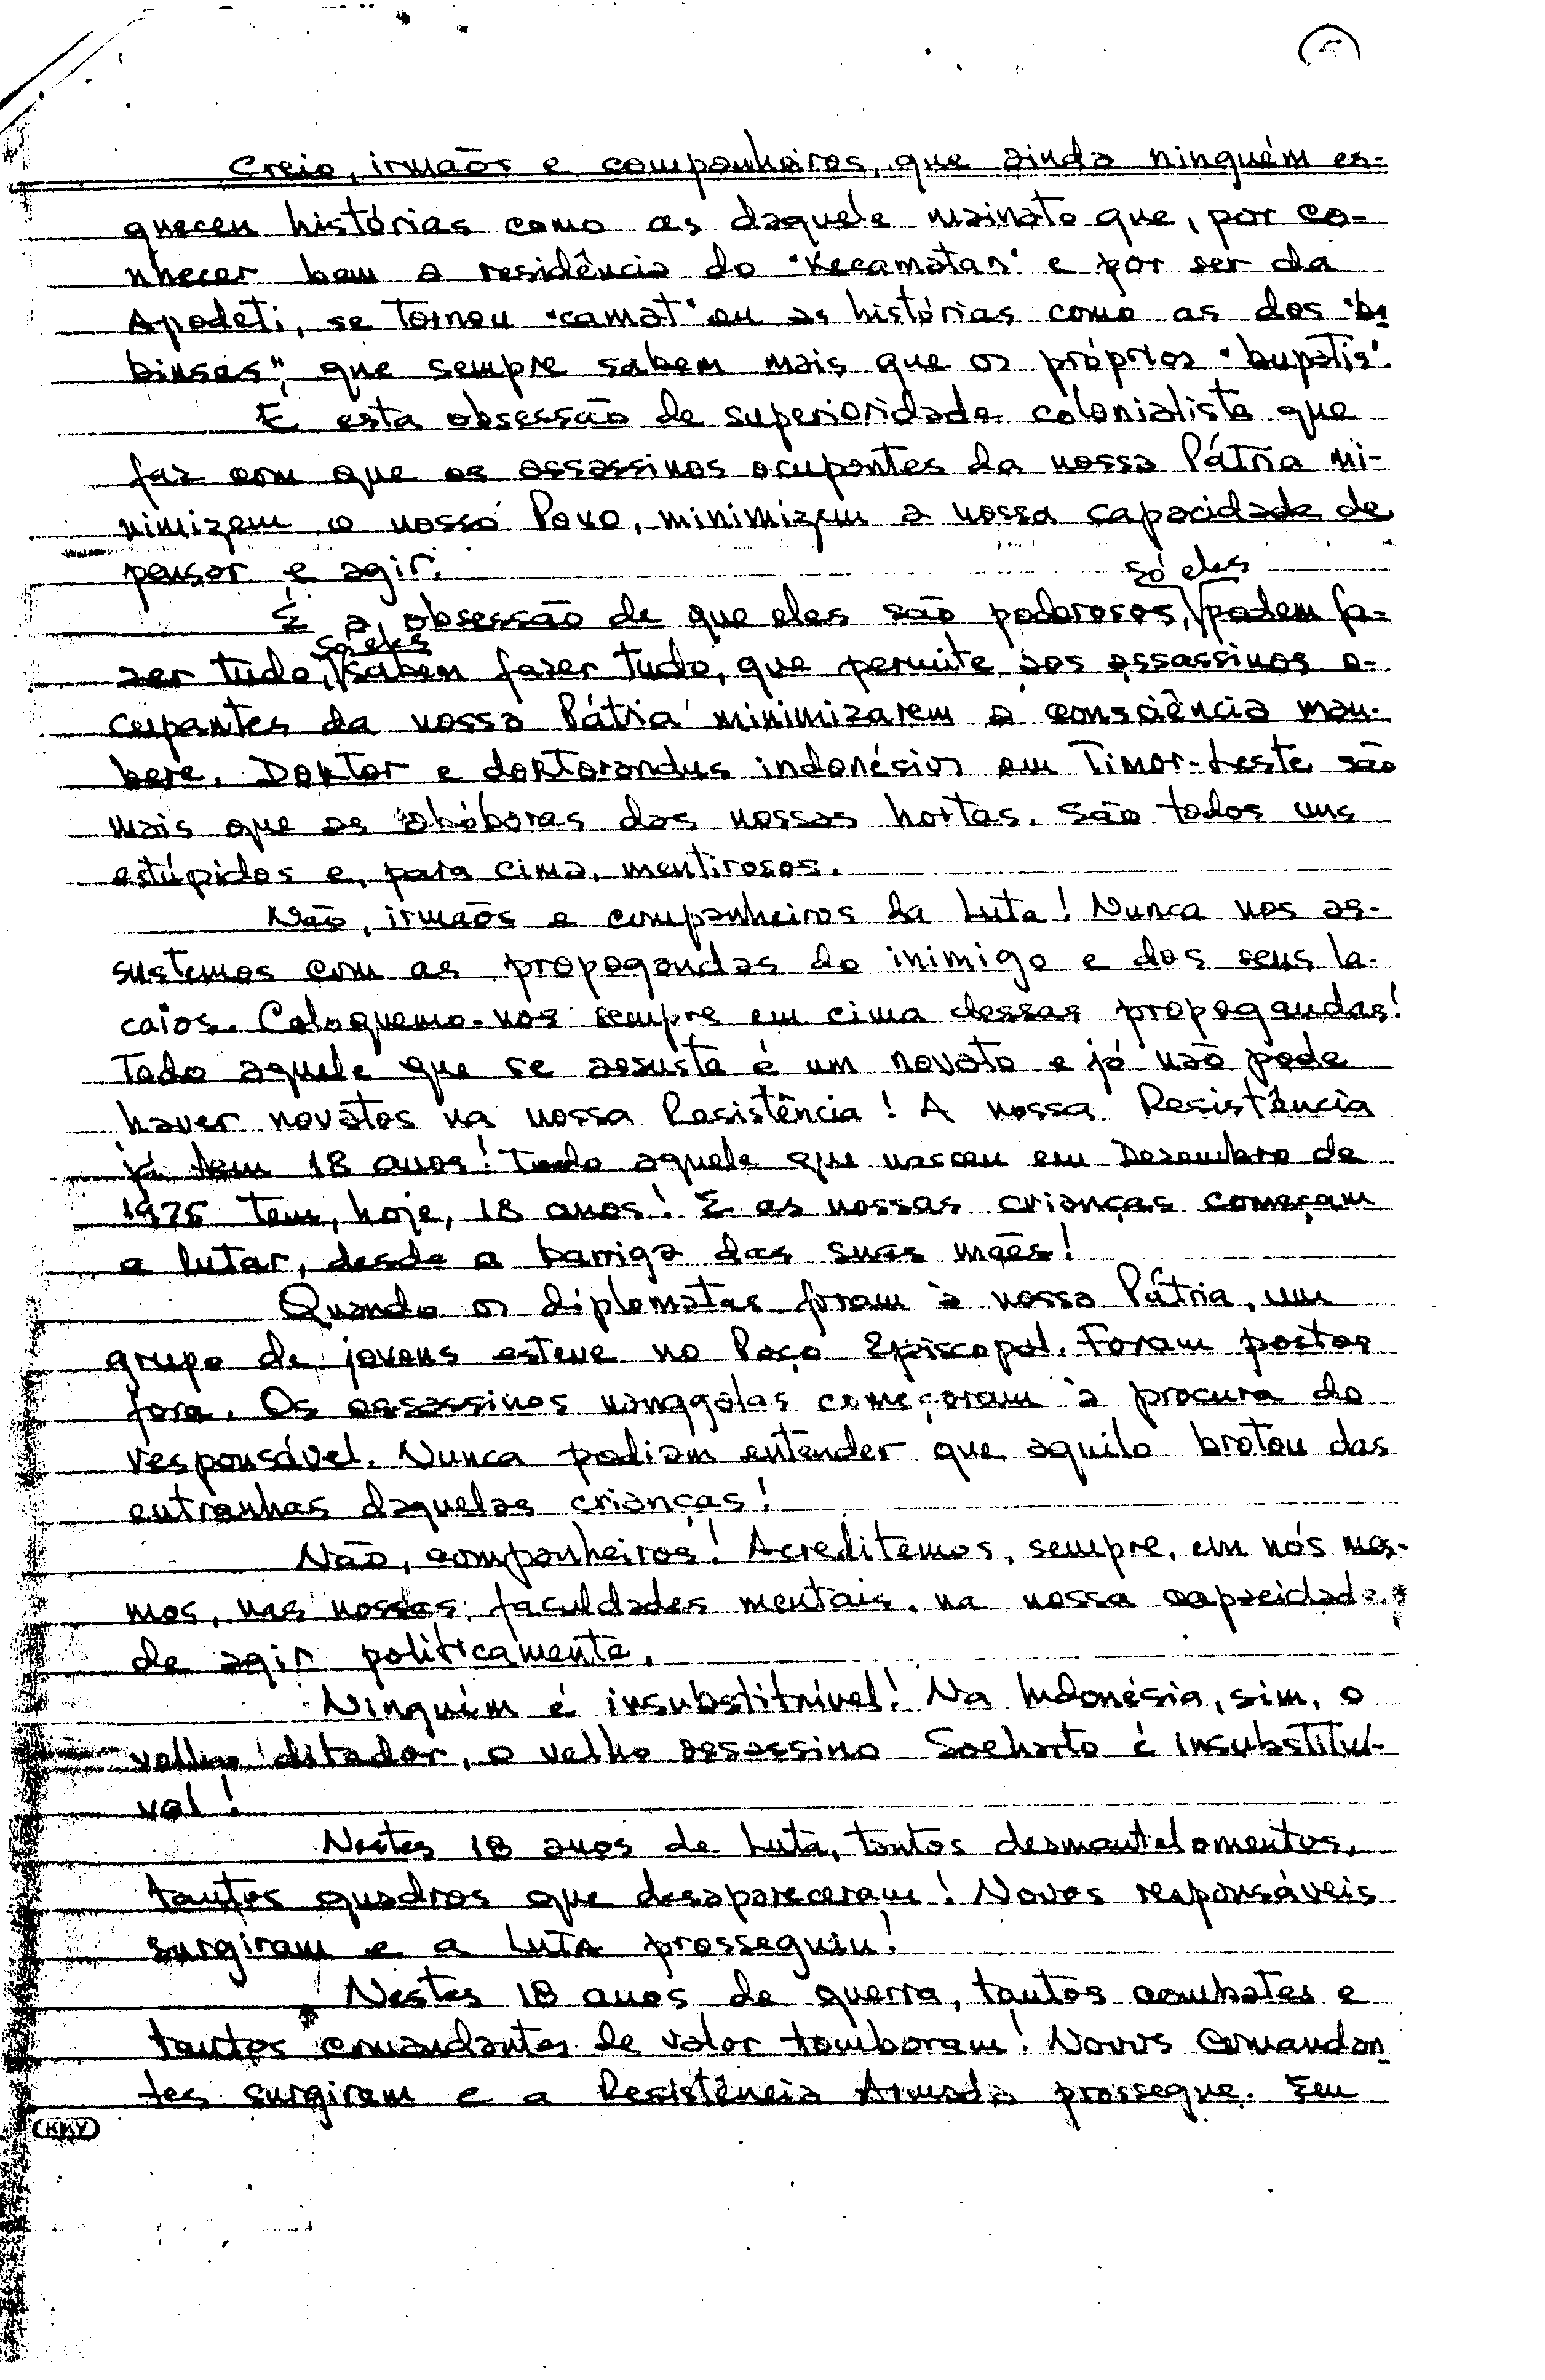 Creio, irmãos e companheiros, que ainda ninguém es-
queceu histórias como as daquele mainato que, por co-
nhecer bem a residência do "Kecamatan" e por ser da
Apodeti, se tornou "camat" ou as histórias como as dos "ba
binsas", que sempre sabem mais que os próprios "bupatis".
E esta obsessão de superioridade colonialista que
faz com que os assassinos ocupantes da nossa Pátria mi-
nimizem o nosso Povo, minimizem a nossa capacidade de
pensar e agir.
É a obsessão de que eles são poderosos, só eles podem fa-
zer tudo, só eles sabem fazer tudo, que permite aos assassinos o-
cupantes da nossa Pátria minimizarem a consciência mau-
bere. Doktor e doktorandus indonésios em Timor-Leste são
mais que as abóboras das nossas hortas. São todos uns
estúpidos e, para cima, mentirosos.
Não, irmãos e companheiros da Luta! Nunca nos as-
sustemos com as propagandas do inimigo e dos seus la-
caios. Coloquemo-nos sempre em cima dessas propagandas!
Todo aquele que se assusta é um novato e já não pode
haver novatos na nossa Resistência! A nossa Resistência
já tem 18 anos! Todo aquele que nasceu em Dezembro de
1975 tem, hoje, 18 anos! E as nossas crianças começam
a lutar, desde a barriga das suas mães!
Quando os diplomatas foram à nossa Pátria, um
grupo de jovens esteve no Paço Episcopal. Foram postos
fora. Os assassinos nanggalas começaram à procura do
responsável. Nunca podiam entender que aquilo brotou das
entranhas daquelas crianças!
Não, companheiros! Acreditemos, sempre, em nós mes-
mos, nas nossas faculdades mentais, na nossa capacidade
de agir politicamente.
Ninguém é insubstituível! Na Indonésia, sim, o
velho ditador, o velho assassino Soeharto é insubstituí-
vel!
Nestes 18 anos de Luta, tantos desmantelamentos,
tantos quadros que desapareceram! Novos responsáveis
surgiram e a Luta prosseguiu!
Nestes 18 anos de guerra, tantos combates e
tantos comandantes de valor tombaram! Novos comandan
tes surgiram e a Resistência Armada prossegue. Em